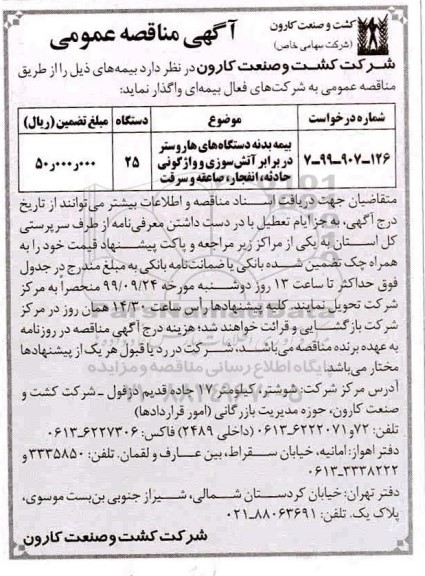 کشت و صنعت کارون
(شرکت سهامی خاص)
آگهی مناقصه عمومی
شرکت کشت و صنعت کارون در نظر دارد بیمه‌های ذیل را از طریق
مناقصه عمومی به شرکت‌های فعال بیمه‌ای واگذار نماید:
شماره درخواست موضوع دستگاه مبلغ تضمین (ریال)
۷-۹۹-۹۰۷-۱۲۶ بیمه بدنه دستگاه‌های هاروستر ۲۵ ۵۰٫۰۰۰٫۰۰۰
در برابر آتش‌سوزی و واژگونی
حادثه، انفجار، صاعقه و سرقت
متقاضیان جهت دریافت اسناد مناقصه و اطلاعات بیشتر می‌توانند از تاریخ
درج آگهی، به جز ایام تعطیل با در دست داشتن معرفی‌نامه از طرف سرپرستی
کل استان به یکی از مراکز زیر مراجعه و پاکت پیشنهاد قیمت خود را به
همراه چک تضمین شده بانکی یا ضمانت‌نامه بانکی به مبلغ مندرج در جدول
فوق حداکثر تا ساعت ۱۳ روز دوشنبه مورخه ۹۹/۰۹/۲۴ منحصراً به مرکز
شرکت تحویل نمایند. کلیه پیشنهادها رأس ساعت ۱۴/۳۰ همان روز در مرکز
شرکت بازگشایی و قرائت خواهند شد؛ هزینه درج آگهی مناقصه در روزنامه
به عهده برنده مناقصه می‌باشد، شرکت در رد یا قبول هر یک از پیشنهادها
مختار می‌باشد.
آدرس مرکز شرکت: شوشتر، کیلومتر ۱۷ جاده قدیم دزفول ـ شرکت کشت و
صنعت کارون، حوزه مدیریت بازرگانی (امور قراردادها)
تلفن: ۷۲ و ۳۶۲۲۲۰۷۱-۰۶۱ (داخلی ۲۴۸۹) فاکس: ۳۶۲۲۷۳۰۶-۰۶۱
دفتر اهواز: امانیه، خیابان سقراط، بین عارف و لقمان. تلفن: ۳۳۳۵۸۵۰ و
۳۳۳۸۲۲۲-۰۶۱۳
دفتر تهران: خیابان کردستان شمالی، شیراز جنوبی بن‌بست موسوی،
پلاک یک. تلفن: ۸۸۰۶۳۶۹۱-۰۲۱
شرکت کشت و صنعت کارون
ParsNamadData
پایگاه اطلاع رسانی مناقصه و مزایده